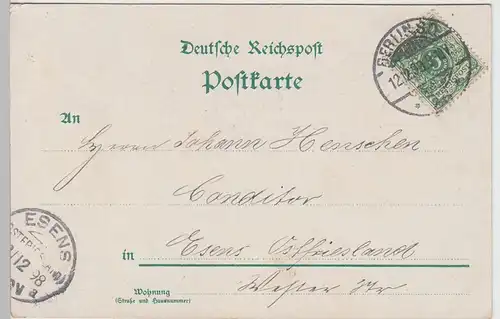 Deutsche Reichspost
Postkarte
BERLIN S.O.
12.12.98
An
Herrn Johann Henschen
Conditor
in Esens Ostfriesland
Wester Str
Wohnung
(Straße und Hausnummer)
ESENS
12 98